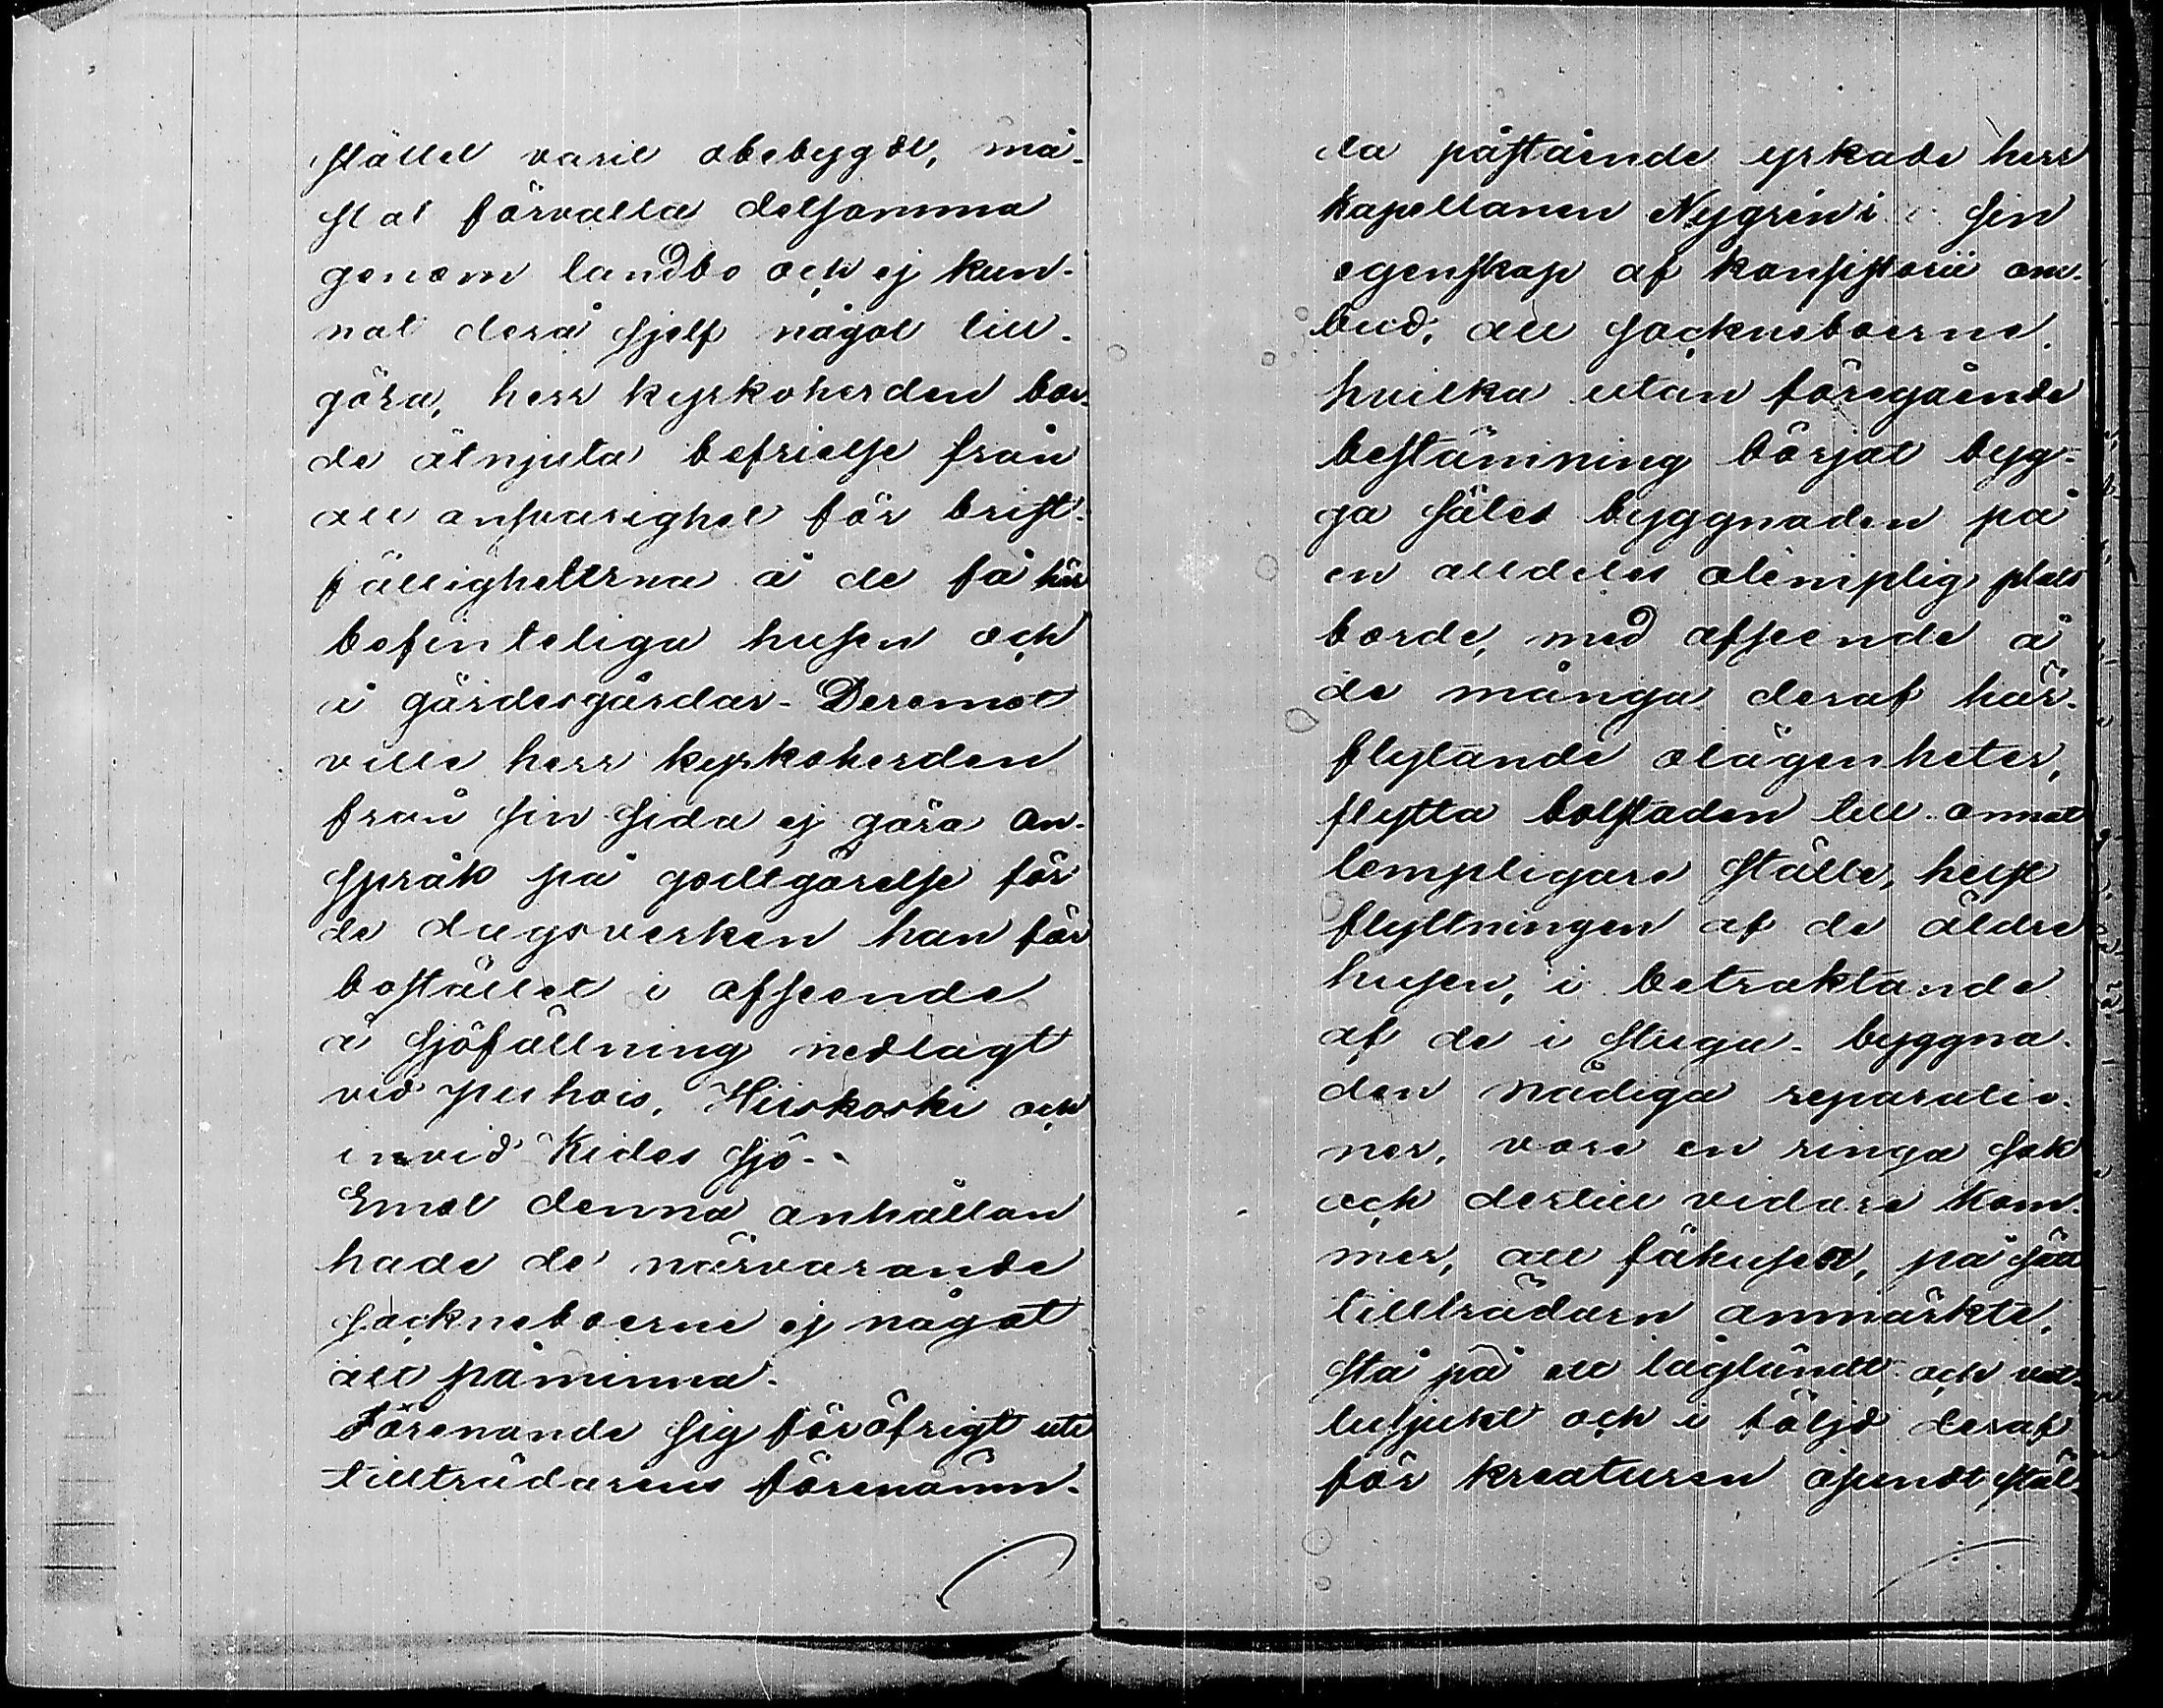 stället varit obebygdt, må-
stat förvalta detsamma
genom landbo och ej kun-
nat derå sjelf något till-
göra, herr kyrkoherden bor-
de åtnjuta befrielse från
all ansvarighet för brist-
fälligheterna å de få här
befinteliga husen och
å gärdesgårdar. Deremot
ville herr kyrkoherden
från sin sida ej göra an-
språk på godtgörelse för
de dagsverken han för
bostället i afseende
å sjöfällning nedlagt
vid puhois, Hiiskoski och
invid Kides sjö.-
Emot denna anhållan
hade de närvarande
sockneboerne ej något
att påminna.
Förenande sig föröfrigt uti
tillträdarens förenämn-
da påstående yrkade herr
kapellanen Nygrén i sin
egenskap af konsistorii om-
bud, att sockneboerne,
hvilka utan föregående
bestämning börjat byg-
ga sålet byggnaden på
en alldeles olämplig plats
borde, med afseende å
de många deraf här-
flytande olägenheter,
flytta bolstaden till annat
lempligare ställe, helst
flyttningen af de äldre
husen, i betraktande
af de i stuga-byggna-
den nödiga reparatio-
ner, vore en ringa sak
och dertill vidare kom-
mer, att fähusen, på sätt
tillträdarn anmärkte,
stå på ett låglundt och vat-
tusjukt och i följd deraf
för kreaturen osundt stäl-